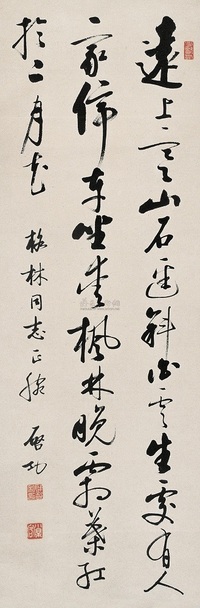 遠上寒山石逕斜白雲生處有人
家停車坐愛楓林晚霜葉紅
於二月花 格林同志正腕 啓功